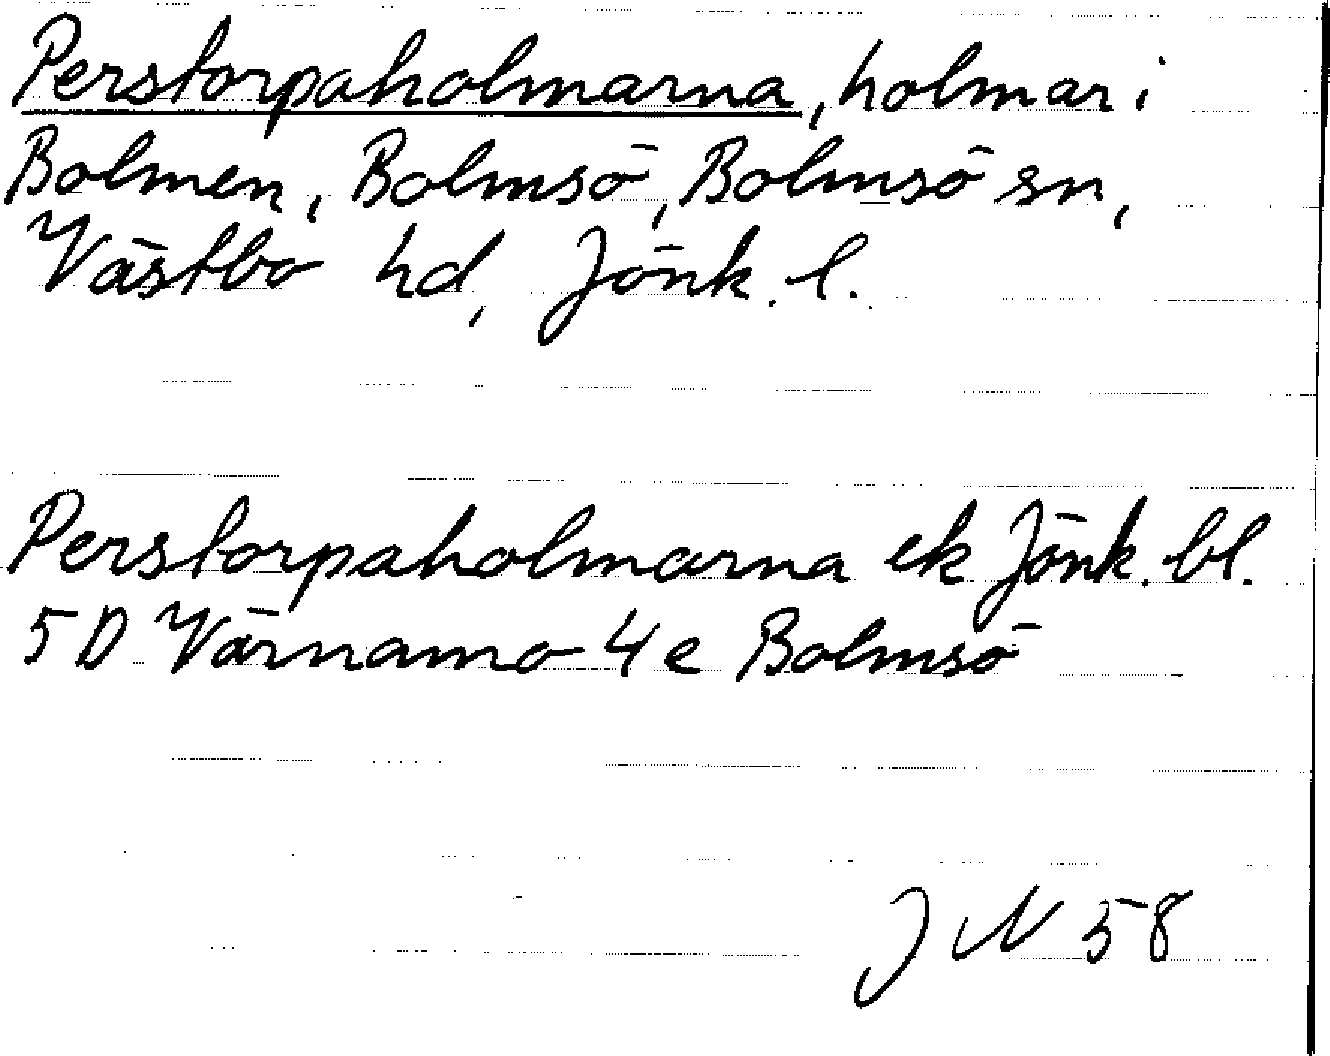 Perstorpaholmarna, holmar i
Bolmen, Bolmsö, Bolmsö sn,
Västbo hd, Jönk. l.
Perstorpaholmarna ek Jönk. bl.
5D Värnamo 4e Bolmsö
JN 58